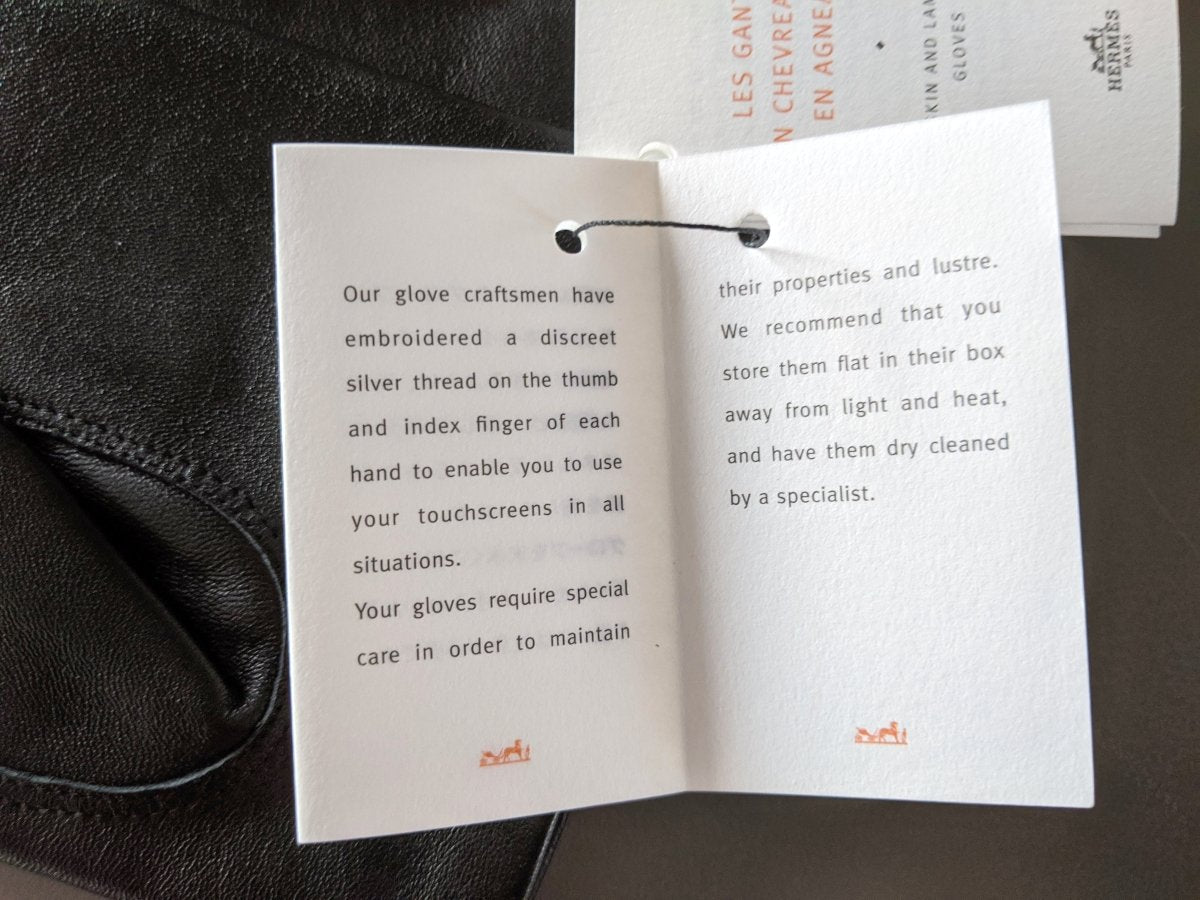 Our glove craftsmen have
embroidered a discreet
silver thread on the thumb
and index finger of each
hand to enable you to use
your touchscreens in all
situations.
Your gloves require special
care in order to maintain
their properties and lustre.
We recommend that you
store them flat in their box
away from light and heat,
and have them dry cleaned
by a specialist.
LES
EN
AND
GLOVES
HERMÈS
PARIS